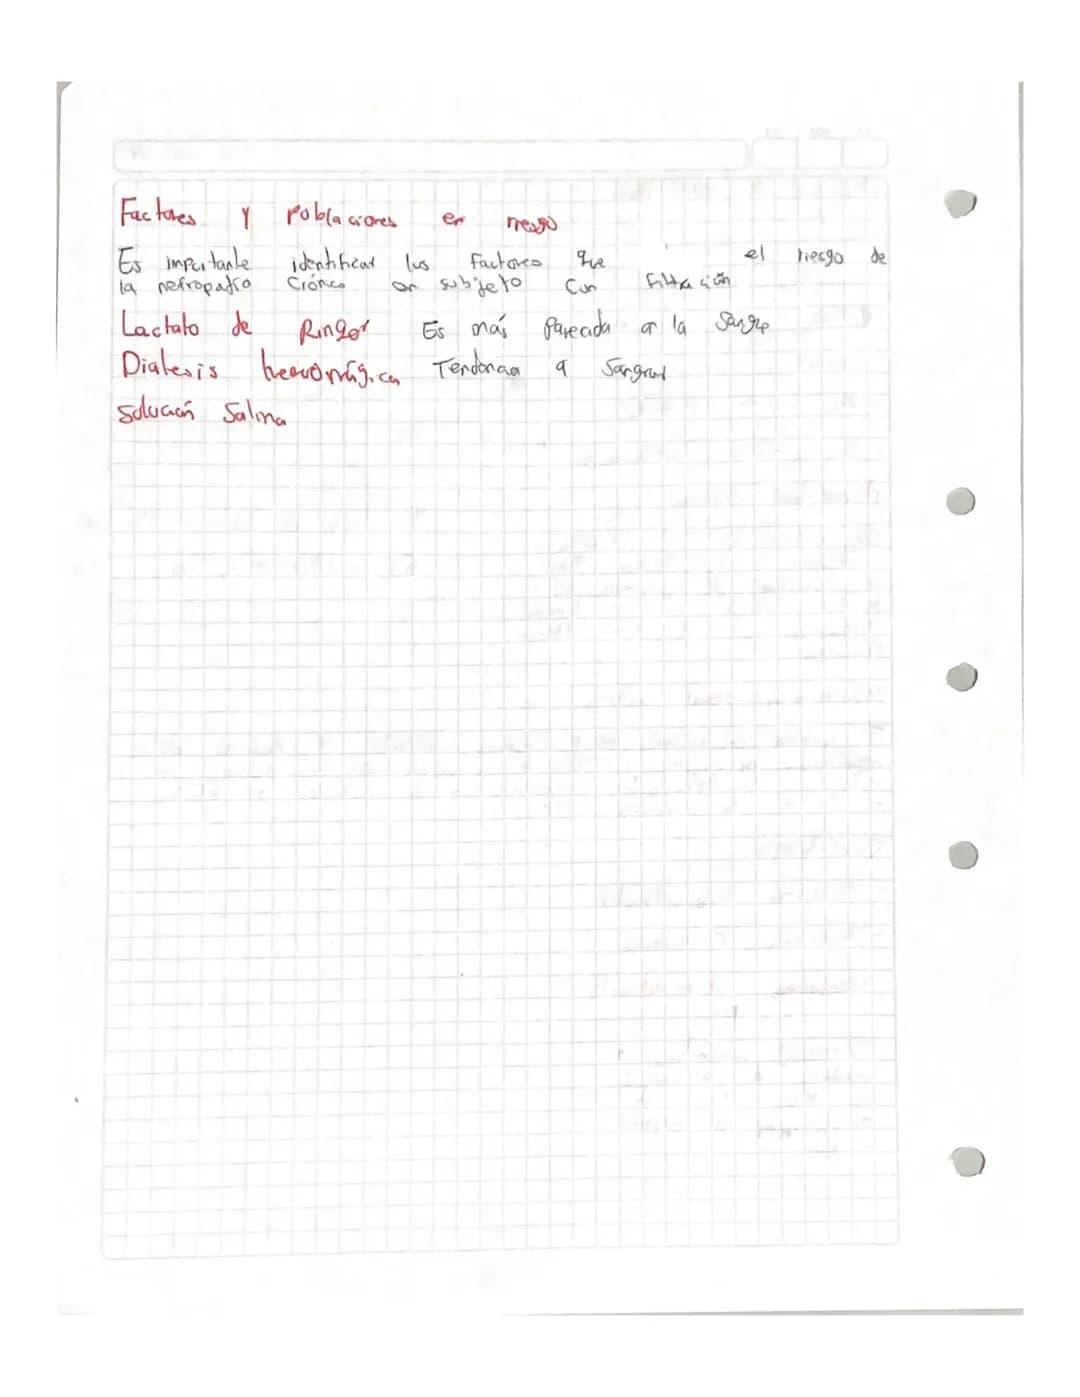 Factores y Poblaciones en riesgo
Es importante identificar los factores que el riesgo de
la nefropatía Crónica en subjeto con filtración
Lactato de Ringer Es más parecida a la Sangre
Diatesis hemorrágica Tendencia a Sangrar
Solución Salina